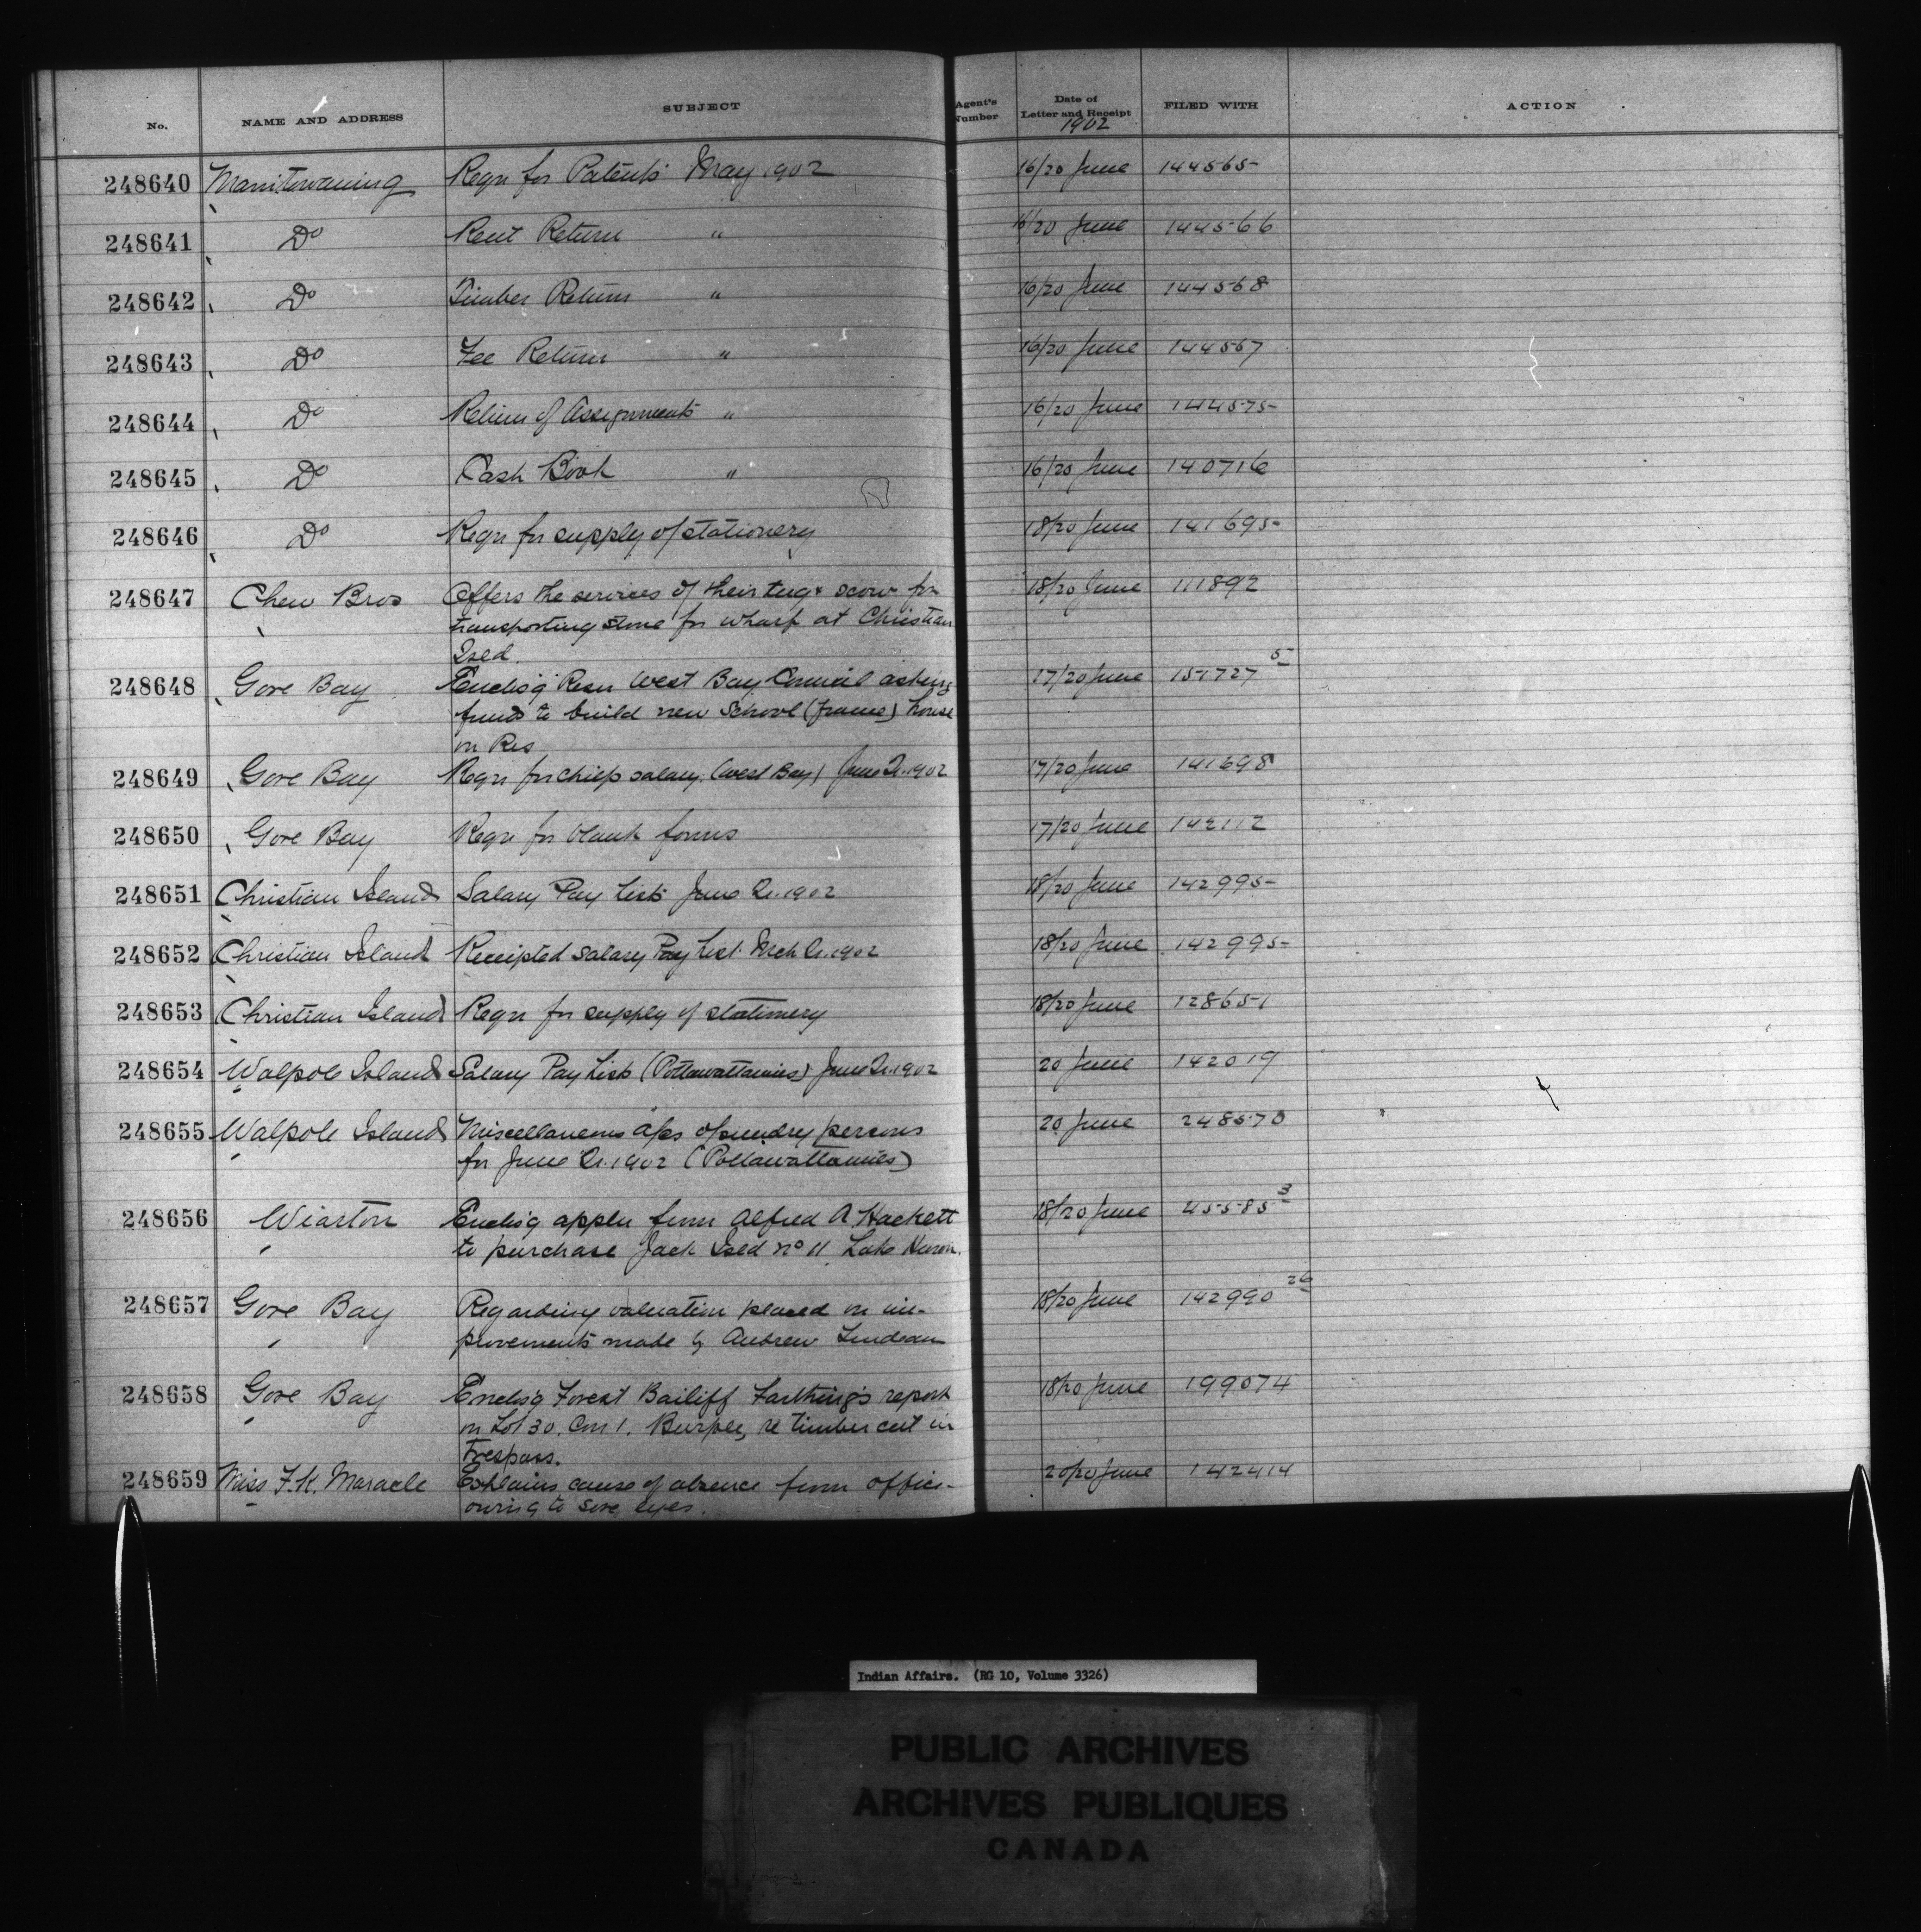 No. NAME AND ADDRESS SUBJECT Agent's Number Date of Letter and Receipt FILED WITH ACTION
1902
248640 Manitowaning Reqn for Patents May 1902 16/20 June 144565
248641 Do Rent Return " 16/20 June 144566
248642 Do Timber Return " 16/20 June 144568
248643 Do Fee Return " 16/20 June 144567
248644 Do Return of Assignments " 16/20 June 144575
248645 Do Cash Book " 16/20 June 140716
248646 Do Reqn for supply of stationery 18/20 June 141695
248647 Chew Bros Offers the services of their tug & scow for 18/20 June 111892
transporting stone for wharf at Christian
Isld.
248648 Gore Bay Enclos'g Resn West Bay Council asking 17/20 June 151727 5
funds to build new School (frame) house
on Res
248649 Gore Bay Reqn for chiefs salary (West Bay) June Qr. 1902 17/20 June 141698
248650 Gore Bay Reqn for blank forms 17/20 June 142112
248651 Christian Island Salary Pay List June Qr. 1902 18/20 June 142995
248652 Christian Island Receipted Salary Pay List Mch Qr. 1902 18/20 June 142995
248653 Christian Island Reqn for supply of stationery 18/20 June 128651
248654 Walpole Island Salary Pay List (Pottawattamies) June Qr. 1902 20 June 142019
248655 Walpole Island Miscellaneous a/cs of sundry persons 20 June 248570
for June Qr. 1902 (Pottawattamies)
248656 Wiarton Enclos'g appln from Alfred A. Hackett 18/20 June 45585 3
to purchase Jack Isld no 11 Lake Huron.
248657 Gore Bay Regarding valuation placed on im- 18/20 June 142990 26
provements made by Andrew
248658 Gore Bay Enclos'g Forest Bailiff Farthing's report 18/20 June 199074
on Lot 30. Con 1. Burpee, re timber cut in
Trespass.
248659 Miss F. K. Maracle Explains cause of absence from office- 20/20 June 142414
owing to sore eyes.
Indian Affairs. (RG 10, Volume 3326)
PUBLIC ARCHIVES
ARCHIVES PUBLIQUES
CANADA